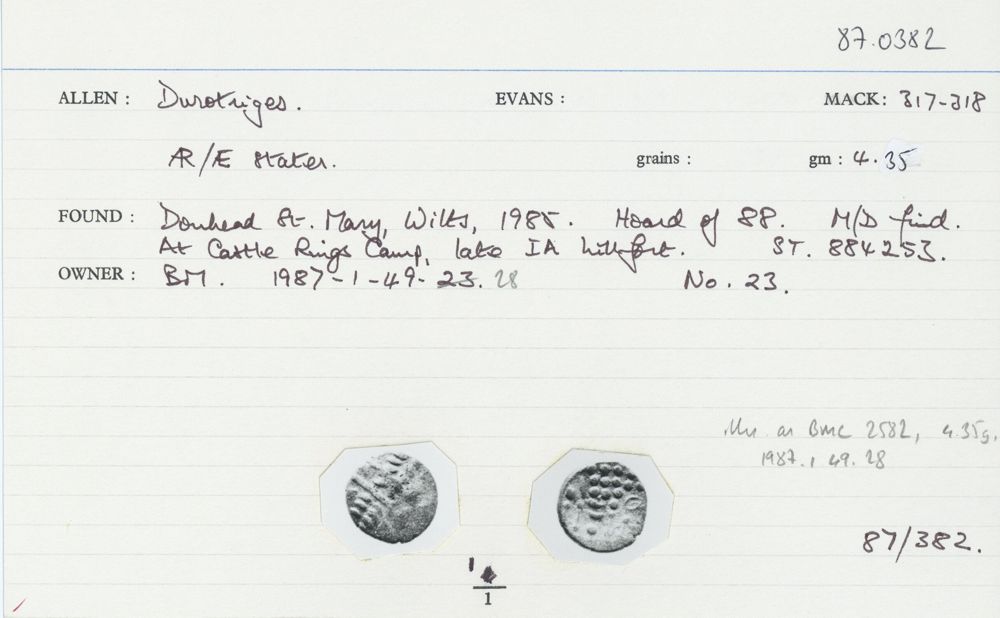 87.0382
ALLEN : Durotriges. EVANS : MACK: 317-318
AR/Æ stater. grains : gm : 4.35
FOUND : Donhead St. Mary, Wilts, 1985. Hoard of 88. M/D find.
At Castle Rings Camp, late IA hillfort. ST. 884253.
OWNER : BM. 1987-1-49-23. 28 No. 23.
illus. as BMC 2582, 4.35g,
1987.1 49.28
87/382.
1
1